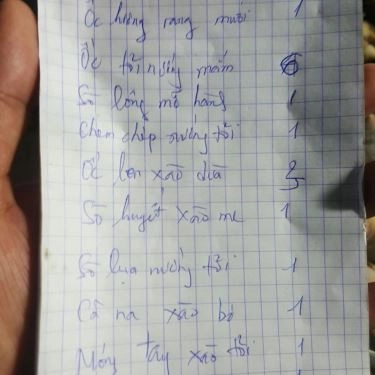 Ốc hương rang muối 1
Ốc tỏi nướng mắm 6
Sò lông mỡ hành 1
Chem chép nướng tỏi 1
Ốc len xào dừa 2
Sò huyết xào me 1
Sò lụa nướng tỏi 1
Cà na xào bơ 1
Móng tay xào tỏi 1